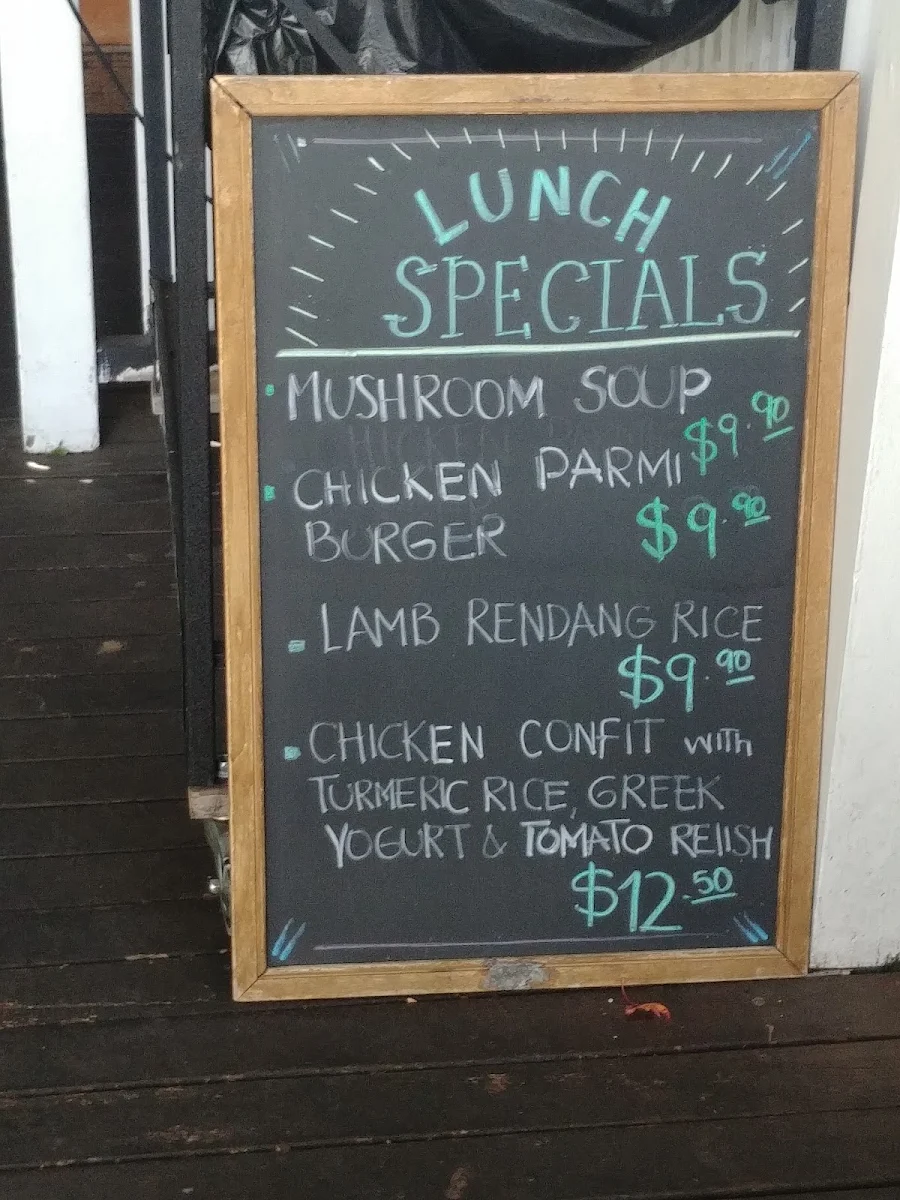 LUNCH
SPECIALS
MUSHROOM SOUP
$9.90
CHICKEN PARMI
BURGER $9.90
LAMB RENDANG RICE
$9.90
CHICKEN CONFIT with
TURMERIC RICE, GREEK
YOGURT & TOMATO RELISH
$12.50